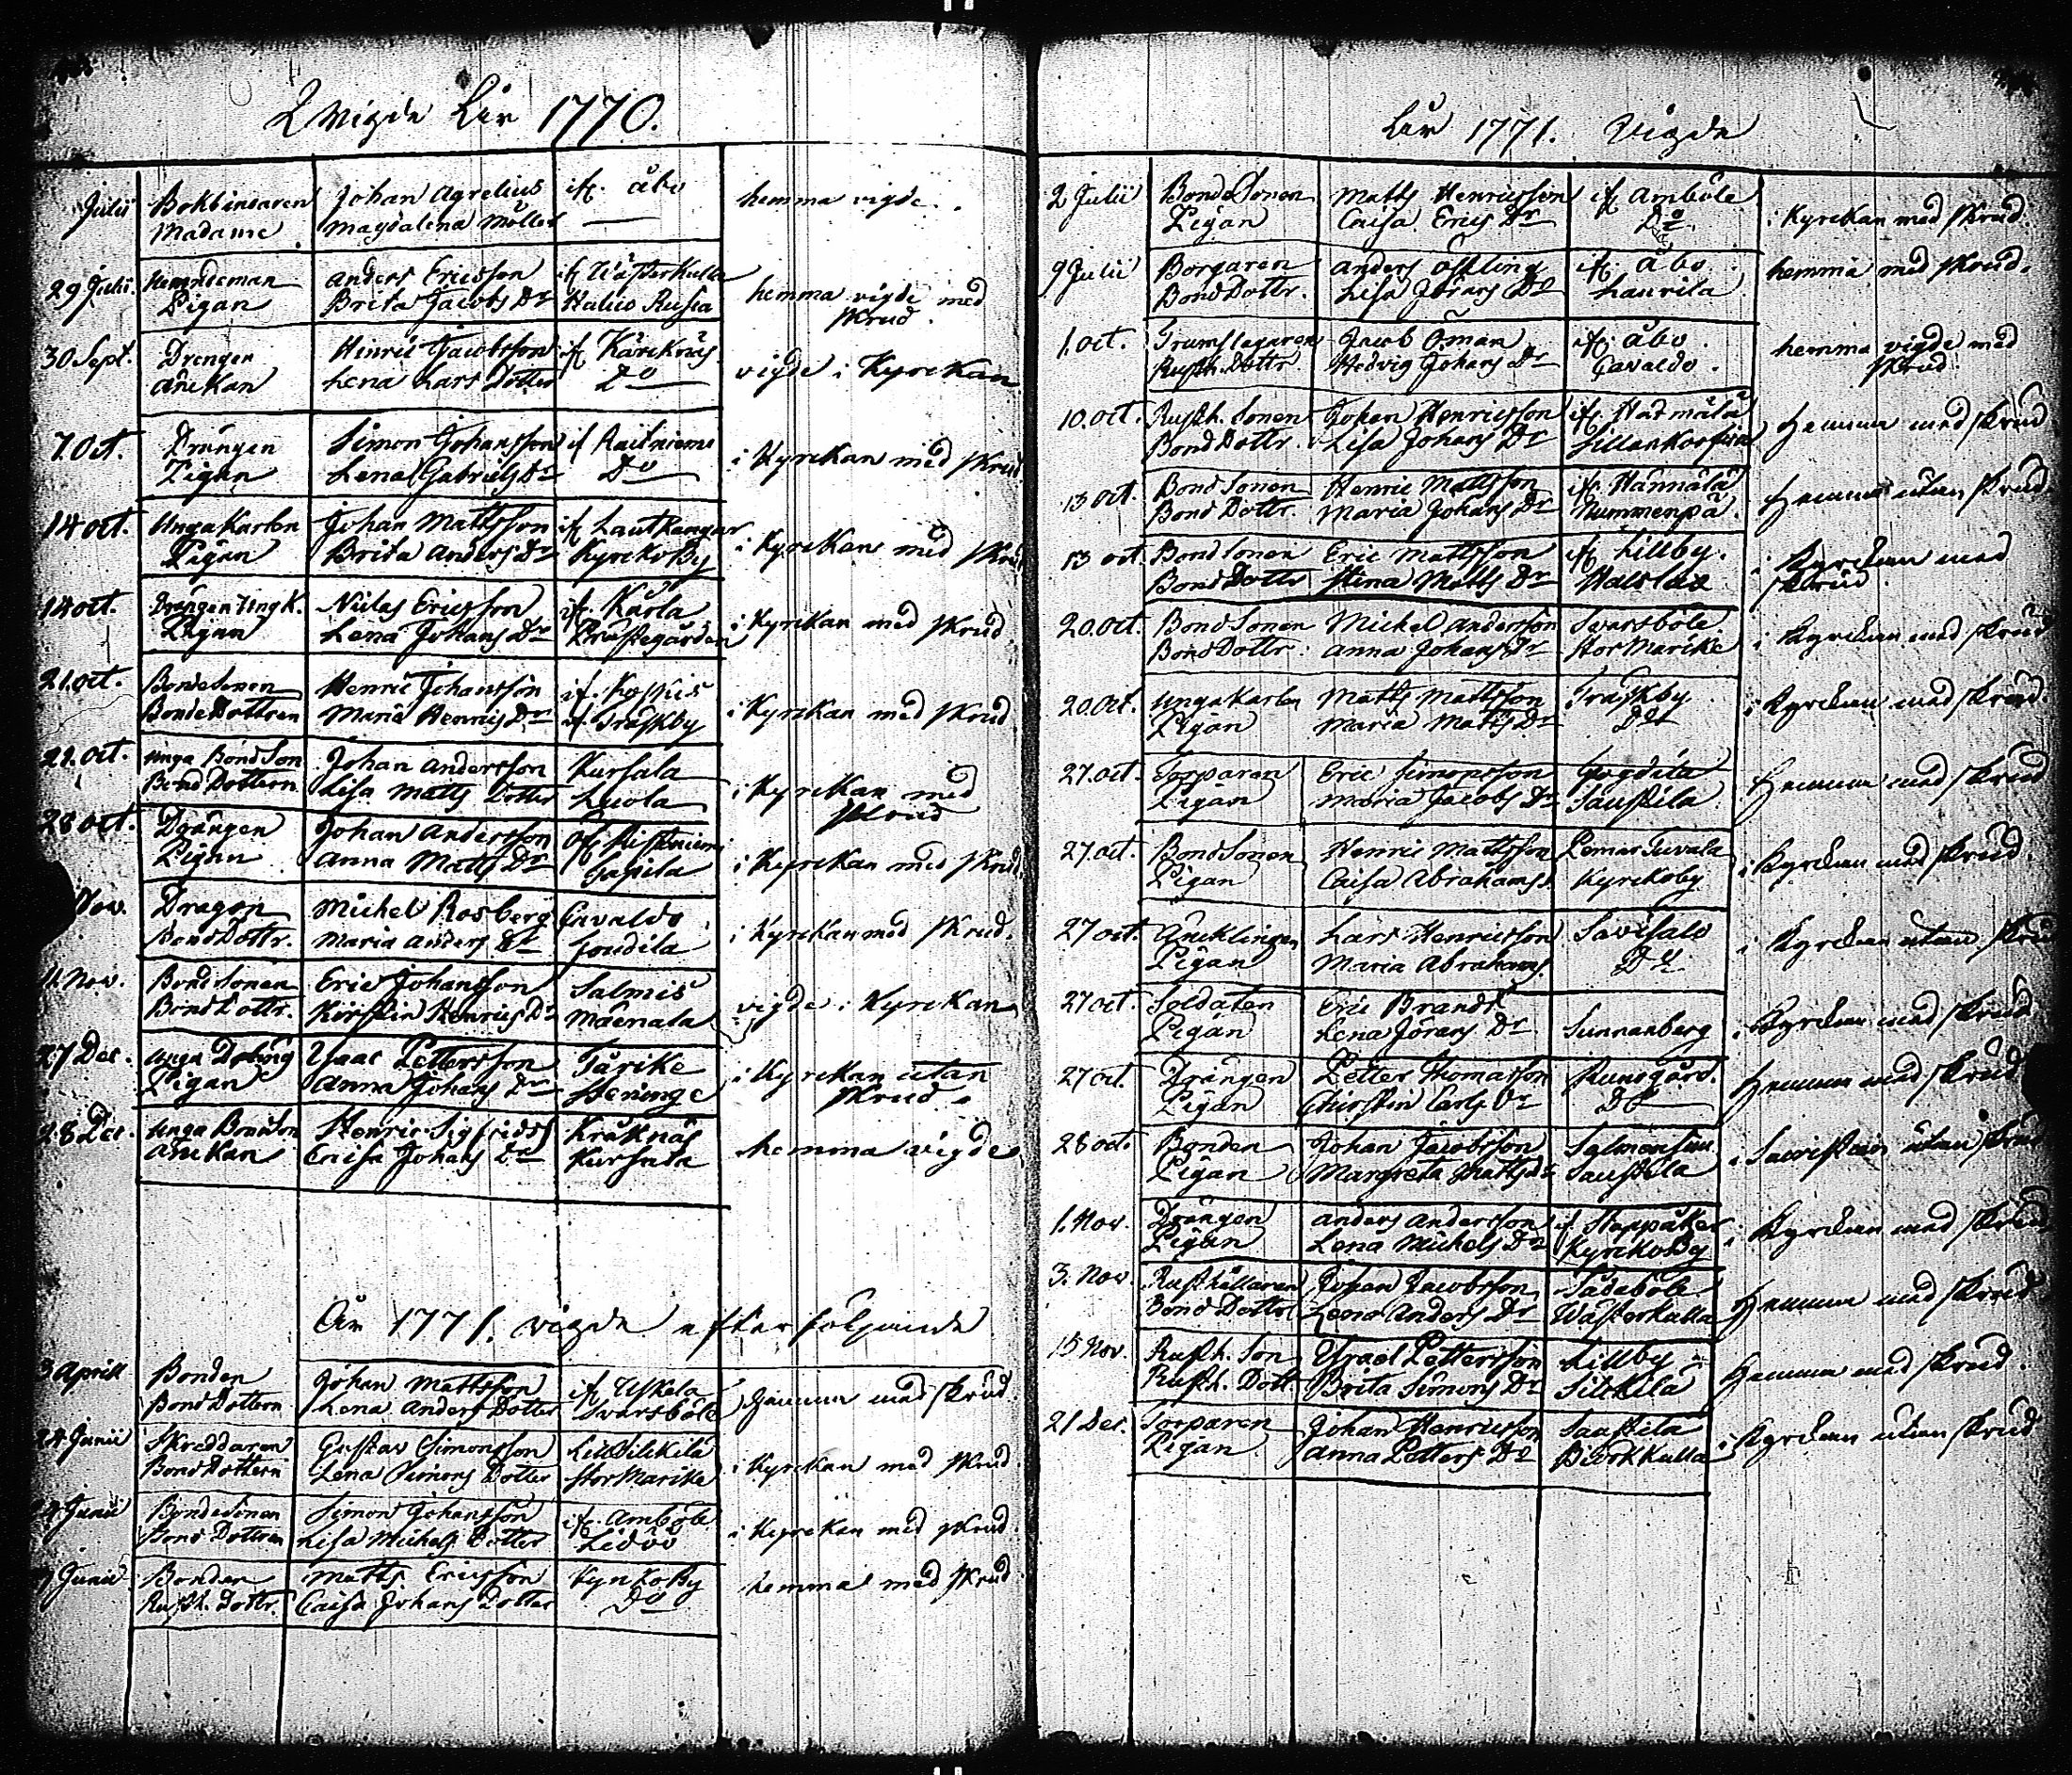 Wigde År 1770.
Julii Bokbindaren Johan Agrelius if. Åbo hemma vigde.
Madame Magdalena Möller
29 Julii. Nemndeman Anders Ericsson if Wästerkulla hemma vigde med
Pigan Brita Jacobs Dr skrud.
30 Sept. Drengen Hinric Jacobsson if Kärcknäs vigde i Kyrckan
Änckan Lena Lars Dotter Do
7. Oct. Drängen Simon Johansson if i Kyrckan med skrud
Pigan Lena Gabriels Dr Do
14 oct. Unga Karlen Johan Mattsson if Lautkangar i Kyrckan med skrud
Pigan Brita Anders Dr KyrckoBy
14 oct. Drängen Ung K. Niclas Ericsson if. Kärla i Kyrckan med skrud
Pigan Lena Johans Dr Prästegården
21. oct. Bondesonen Henric Johansson if. Koskis i Kyrckan med skrud
BondeDottren Maria Henrics Dr if Träskby
21. oct. Unga Bond Son Johan Andersson Kursala i Kyrckan med
Bond Dottern Lisa Matts Dotter Luola skrud
28 oct. Drängen Johan Andersson af Ristniemi i Kyrckan med skrud.
Pigan Anna Matts Dr
Nov. Dragon Michel Rosberg Cavaldo i Kyrckan med skrud.
BondDottr. Maria Anders Dr
11. Nov. BondSonen Eric Johansson Salmis vigde i Kyrckan
BondDottr. Kirstin Henrics Dr Mäenala
27 Dec. Unga Ysaac Pettersson Tärike i Kyrckan utan
Pigan Anna Johans Dr Heninge skrud.
28 Dec. Unga Henric Sigfridss Kräknäs hemma vigde
Änckan Johans Dr Kursala
År 1771. vigde efterföljande
3 Aprill Bonden Johan Mattsson if. Uskela Hemma med skrud.
Bond Dottern Lena Anders Dotter Svarsböle
24 Junii Skreddaren Gustav Simonsson i Kyrckan med skrud.
Bond Dottern Lena Simons Dotter StorMarike
24 Junii Bondesonen Simon Johansson if. Amböle i Kyrckan med skrud.
Bond Dottren Lisa Michels Dotter Lidöö
Junii Bonden Matts Ericsson KyrkoBy hemma med skrud.
Rusth. Dottr. Caisa Johans Dotter Do
År 1771. Vigde
2 Julii BondeSonen Matts Henricsson if Amböle i Kyrckan med skrud.
Pigan Caisa Erics Dr Do
9 Julii Borgaren Anders Östling if. Åbo hemma med skrud.
Bond Dottr. Lisa Jörans Dr Laurila
1. oct. Trumslagaren Jacob Öman if. Åbo. hemma vigde med
Rusth. Dottr Hedvig Johans Dr Cavaldo. skrud.
10. oct. Rusth. Sonen Johan Henricsson if. Hemma med skrud
BondDottr. Lisa Johans Dr
13 oct. Bond Sonen Henric Mattsson if. Hännälä Hemma utan skrud.
Bond Dottr Maria Johans Dr Nummenpä.
13 oct. Bond Sonen Eric Mattsson if Lillby. i Kyrckan med
Bond Dottr Stina Matts Dr skrud.
20. oct. Bond Sonen Michel Andersson Svarsböle i Kyrckan med skrud
Bond Dottr. Anna Johans Dr Stor Marike
20. oct. Unga Karlen Matts Mattsson Träskby i Kyrckan med skrud.
Pigan Maria Matts Dr Do
27. oct. Torparen Eric Simonsson Hemma med skrud
Pigan Maria Jacobs Dr Saustila
27. oct. BondSonen Henric Mattsson Pemar Tuvala i Kyrckan med skrud.
Pigan Caisa Abrahams. Kyrckoby
27 oct. Änclingen Lars Henricsson Savisalo i Kyrckan utan skrud
Pigan Maria Abrahams. Do
27 oct. Soldaten Eric Brandt i Kyrckan med skrud
Pigan Lena Jörans Dr Sunnanberg
27 oct. Drängen Petter Thomasson Runagård. Hemma med skrud
Pigan Chirstin Carls Dr Do
28 oct. Bonden Johan Jacobsson i Sacristian utan skrud
Pigan Margreta Matts Dr Saustila
1. Nov. Drängen Anders Andersson if. Stappåker i Kyrckan med skrud
Pigan Lena Michels Dr KyrckoBy
3. Nov. Rusthållaren Johan Jacobsson Sädeböle Hemma med skrud
Bond Dottr Lena Anders Dr Wästerkulla
15 Nov. Rusth. Son Ysrael Pettersson Lillby Hemma med skrud.
Rusth. Dott. Brita Simons Dr Silckilä
21 Dec. Torparen Johan Henricsson Saustila i Kyrckan utan skrud
Pigan Anna Petters Dr Biörkkulla